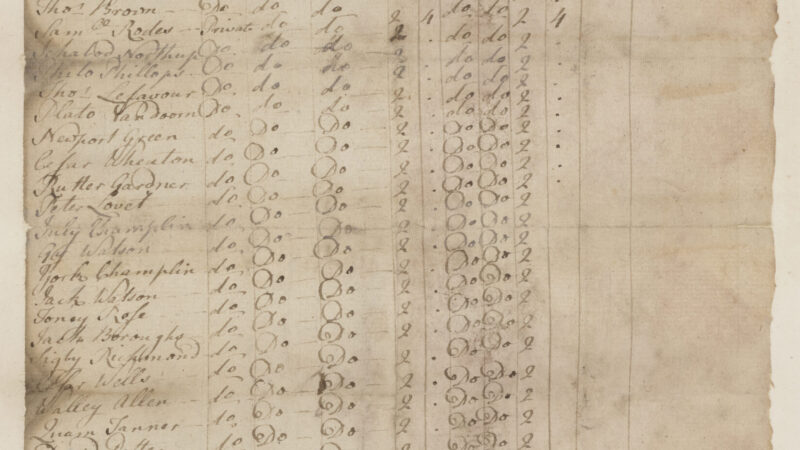 Thos Brown - Do do do 2 4 do do 2 4
Saml Rodes - Private do do 2 . do do 2 .
Ichabod Northup Do do do 2 . do do 2 .
Philo Phillops Do do do 2 . do do 2 .
Thos Lefavour Do do do 2 . do do 2 .
Plato Vandoorn Do do do 2 . do do 2 .
Newport Green do Do Do 2 . Do Do 2 .
Cesar Wheaton do Do Do 2 . Do Do 2 .
Rutter Gardner do Do Do 2 . Do Do 2 .
Peter Lovet do Do Do 2 . Do Do 2
July Champlin do Do Do 2 . Do Do 2
Watson do Do Do 2 . Do Do 2
York Champlin do Do Do 2 . Do Do 2
Jack Watson do Do Do 2 . Do Do 2
Toney Rose do Do Do 2 . Do Do 2
Boroughs do Do Do 2 . Do Do 2
Richmond do Do Do 2 . Do Do 2
Wells do Do Do 2 . Do Do 2
Allen do Do Do 2 . Do Do 2
Quam Tanner do Do Do 2 . Do Do 2